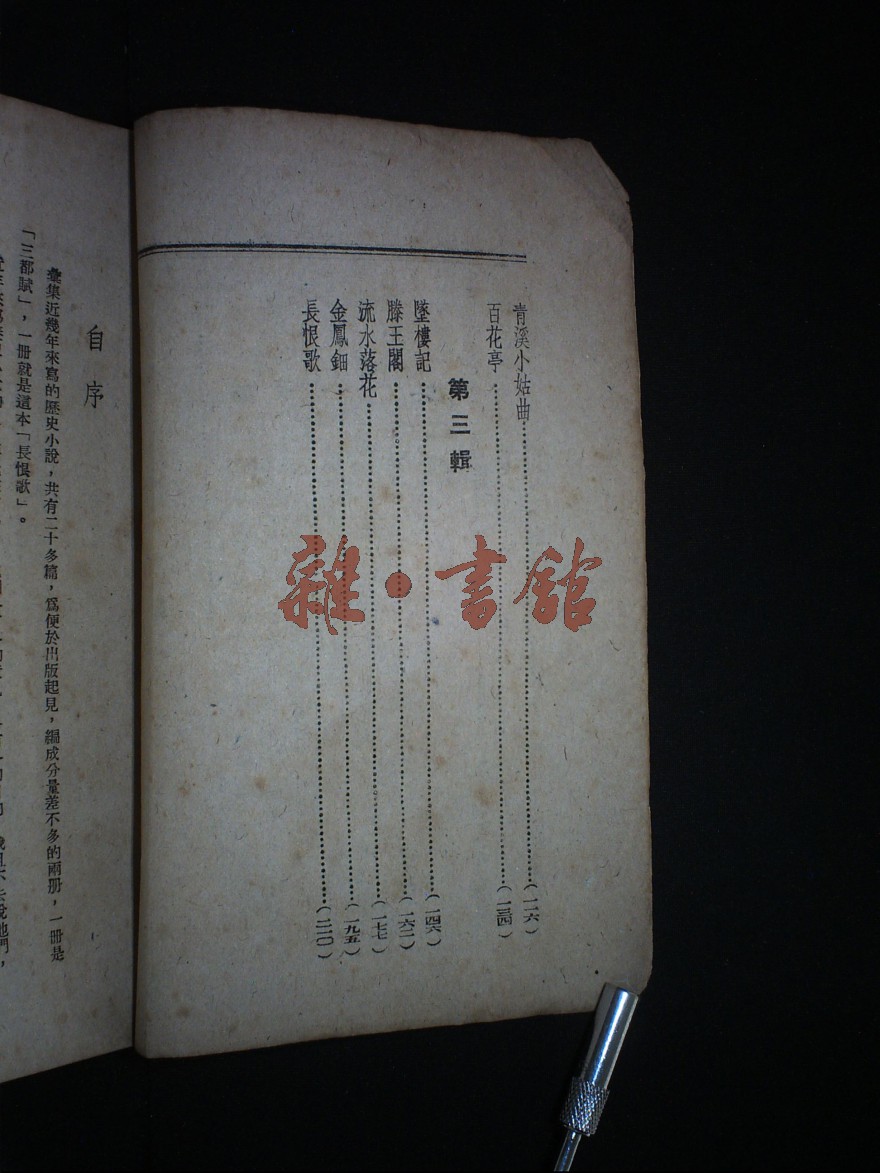 青溪小姑曲（一一六）
百花亭（一三四）
第三輯
墜樓記（一四六）
滕王閣（一六二）
流水落花（一七七）
金鳳鈿（一九五）
長恨歌（二一〇）
自序
彙集近幾年來寫的歷史小說，共有二十多篇，爲便於出版起見，編成分量差不多的兩册，一册是
「三都賦」，一册就是這本「長恨歌」。
雜·書館